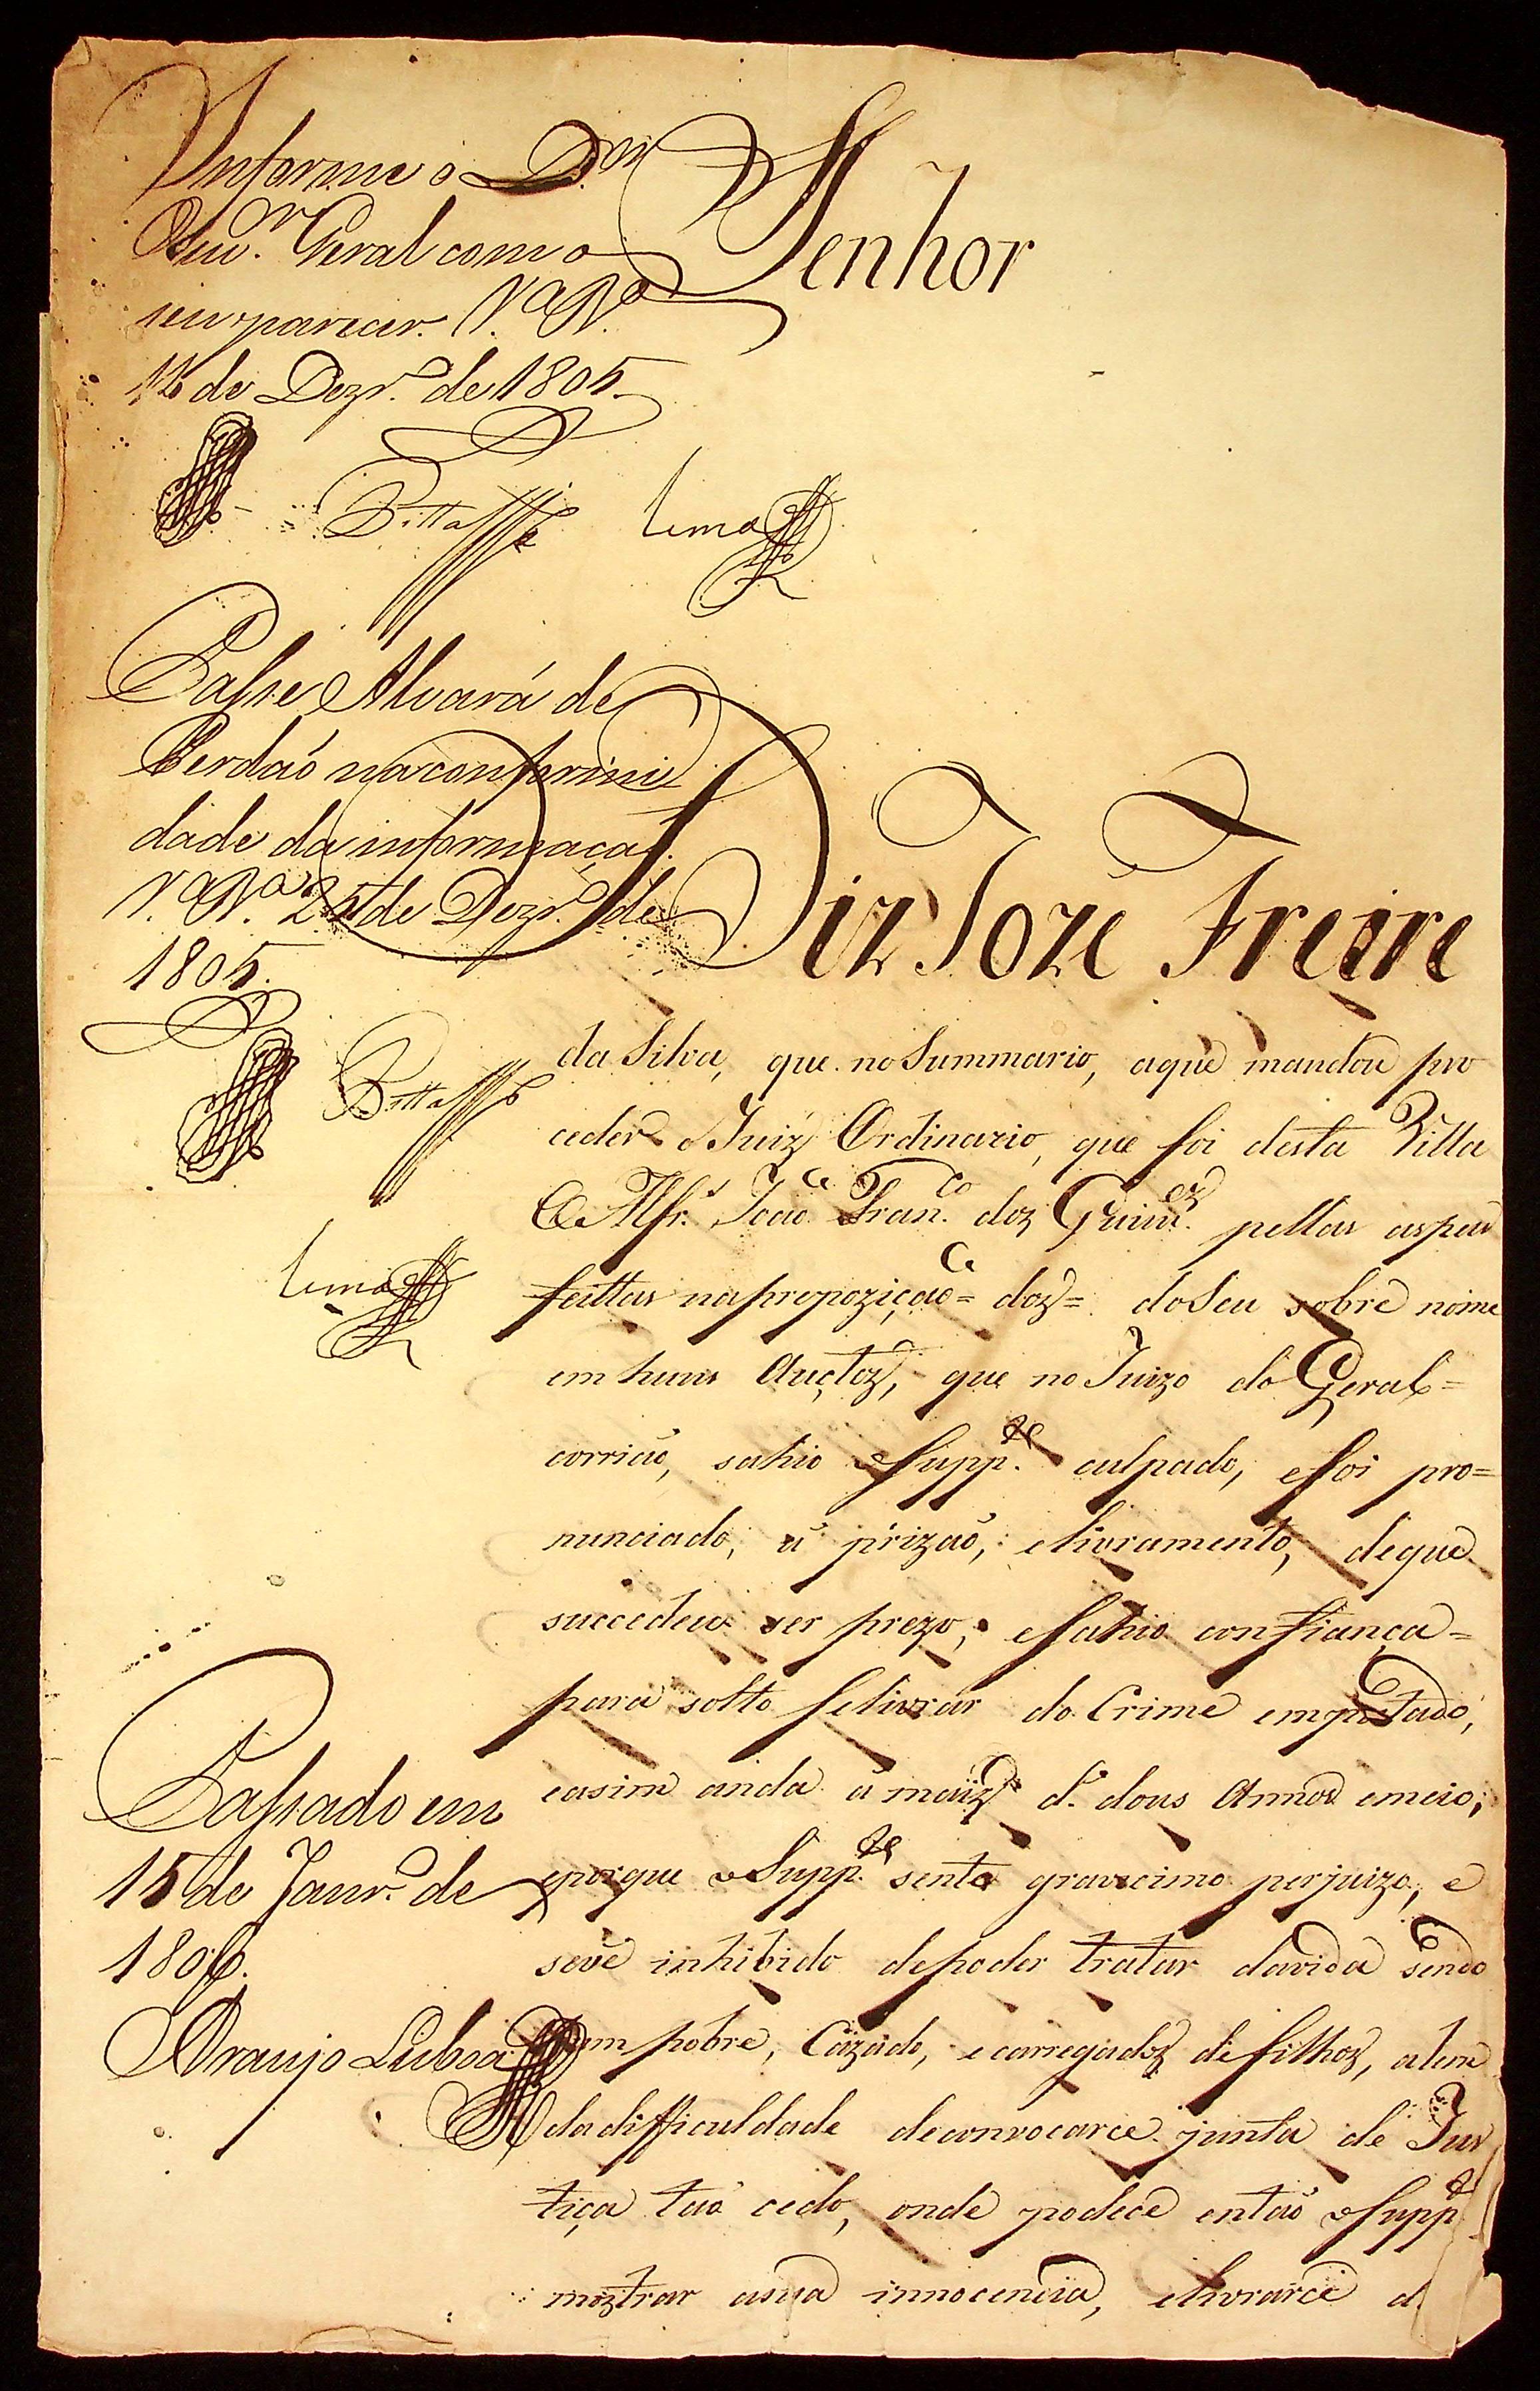 Informe o D.or
Ouv.or Geral com o
seu parecer. V.a N.a
12 de Dezr.o de 1805.
Pitta Lima
Senhor
Passe Alvará de
Perdaó na conformi
dade da informaçaó.
V.a N.a 25 de Dezr.o de
1805.
Pitta
Lima
Passado em
15 de Janr.o de
1806.
Araujo Lisboa
Diz Joze Freire
da Silva, que no Summario, aque mandou pro
ceder o Juiz Ordinario, que foi desta Villa
O Alfr.s Joaó Fran.co doz Guim.ez pellas aspas
feittas na propoziçaó = doz = do Seu sobre nome
em huns Auctoz, que no Juizo do Geral =
corriaó, sahio o Supp.te culpado, e foi pro=
nunciado, á prizaó, e livramento, de que
succedeu ser prezo, e sahio con fiança =
para solto se livrar do Crime emputado,
e asim anda á maiz d.e dous Annos e meio;
e porque o Supp.te sente gravecimo perjuizo, e
se vê inhibido de poder tratar da vida Sendo
hum pobre, Cazado, e carregado de filhoz, alem
da difficuldade de convocarce junta de Jus
tiça taó cedo, onde podece entaó o Supp.te
moztrar a sua innocencia, e livrarce d